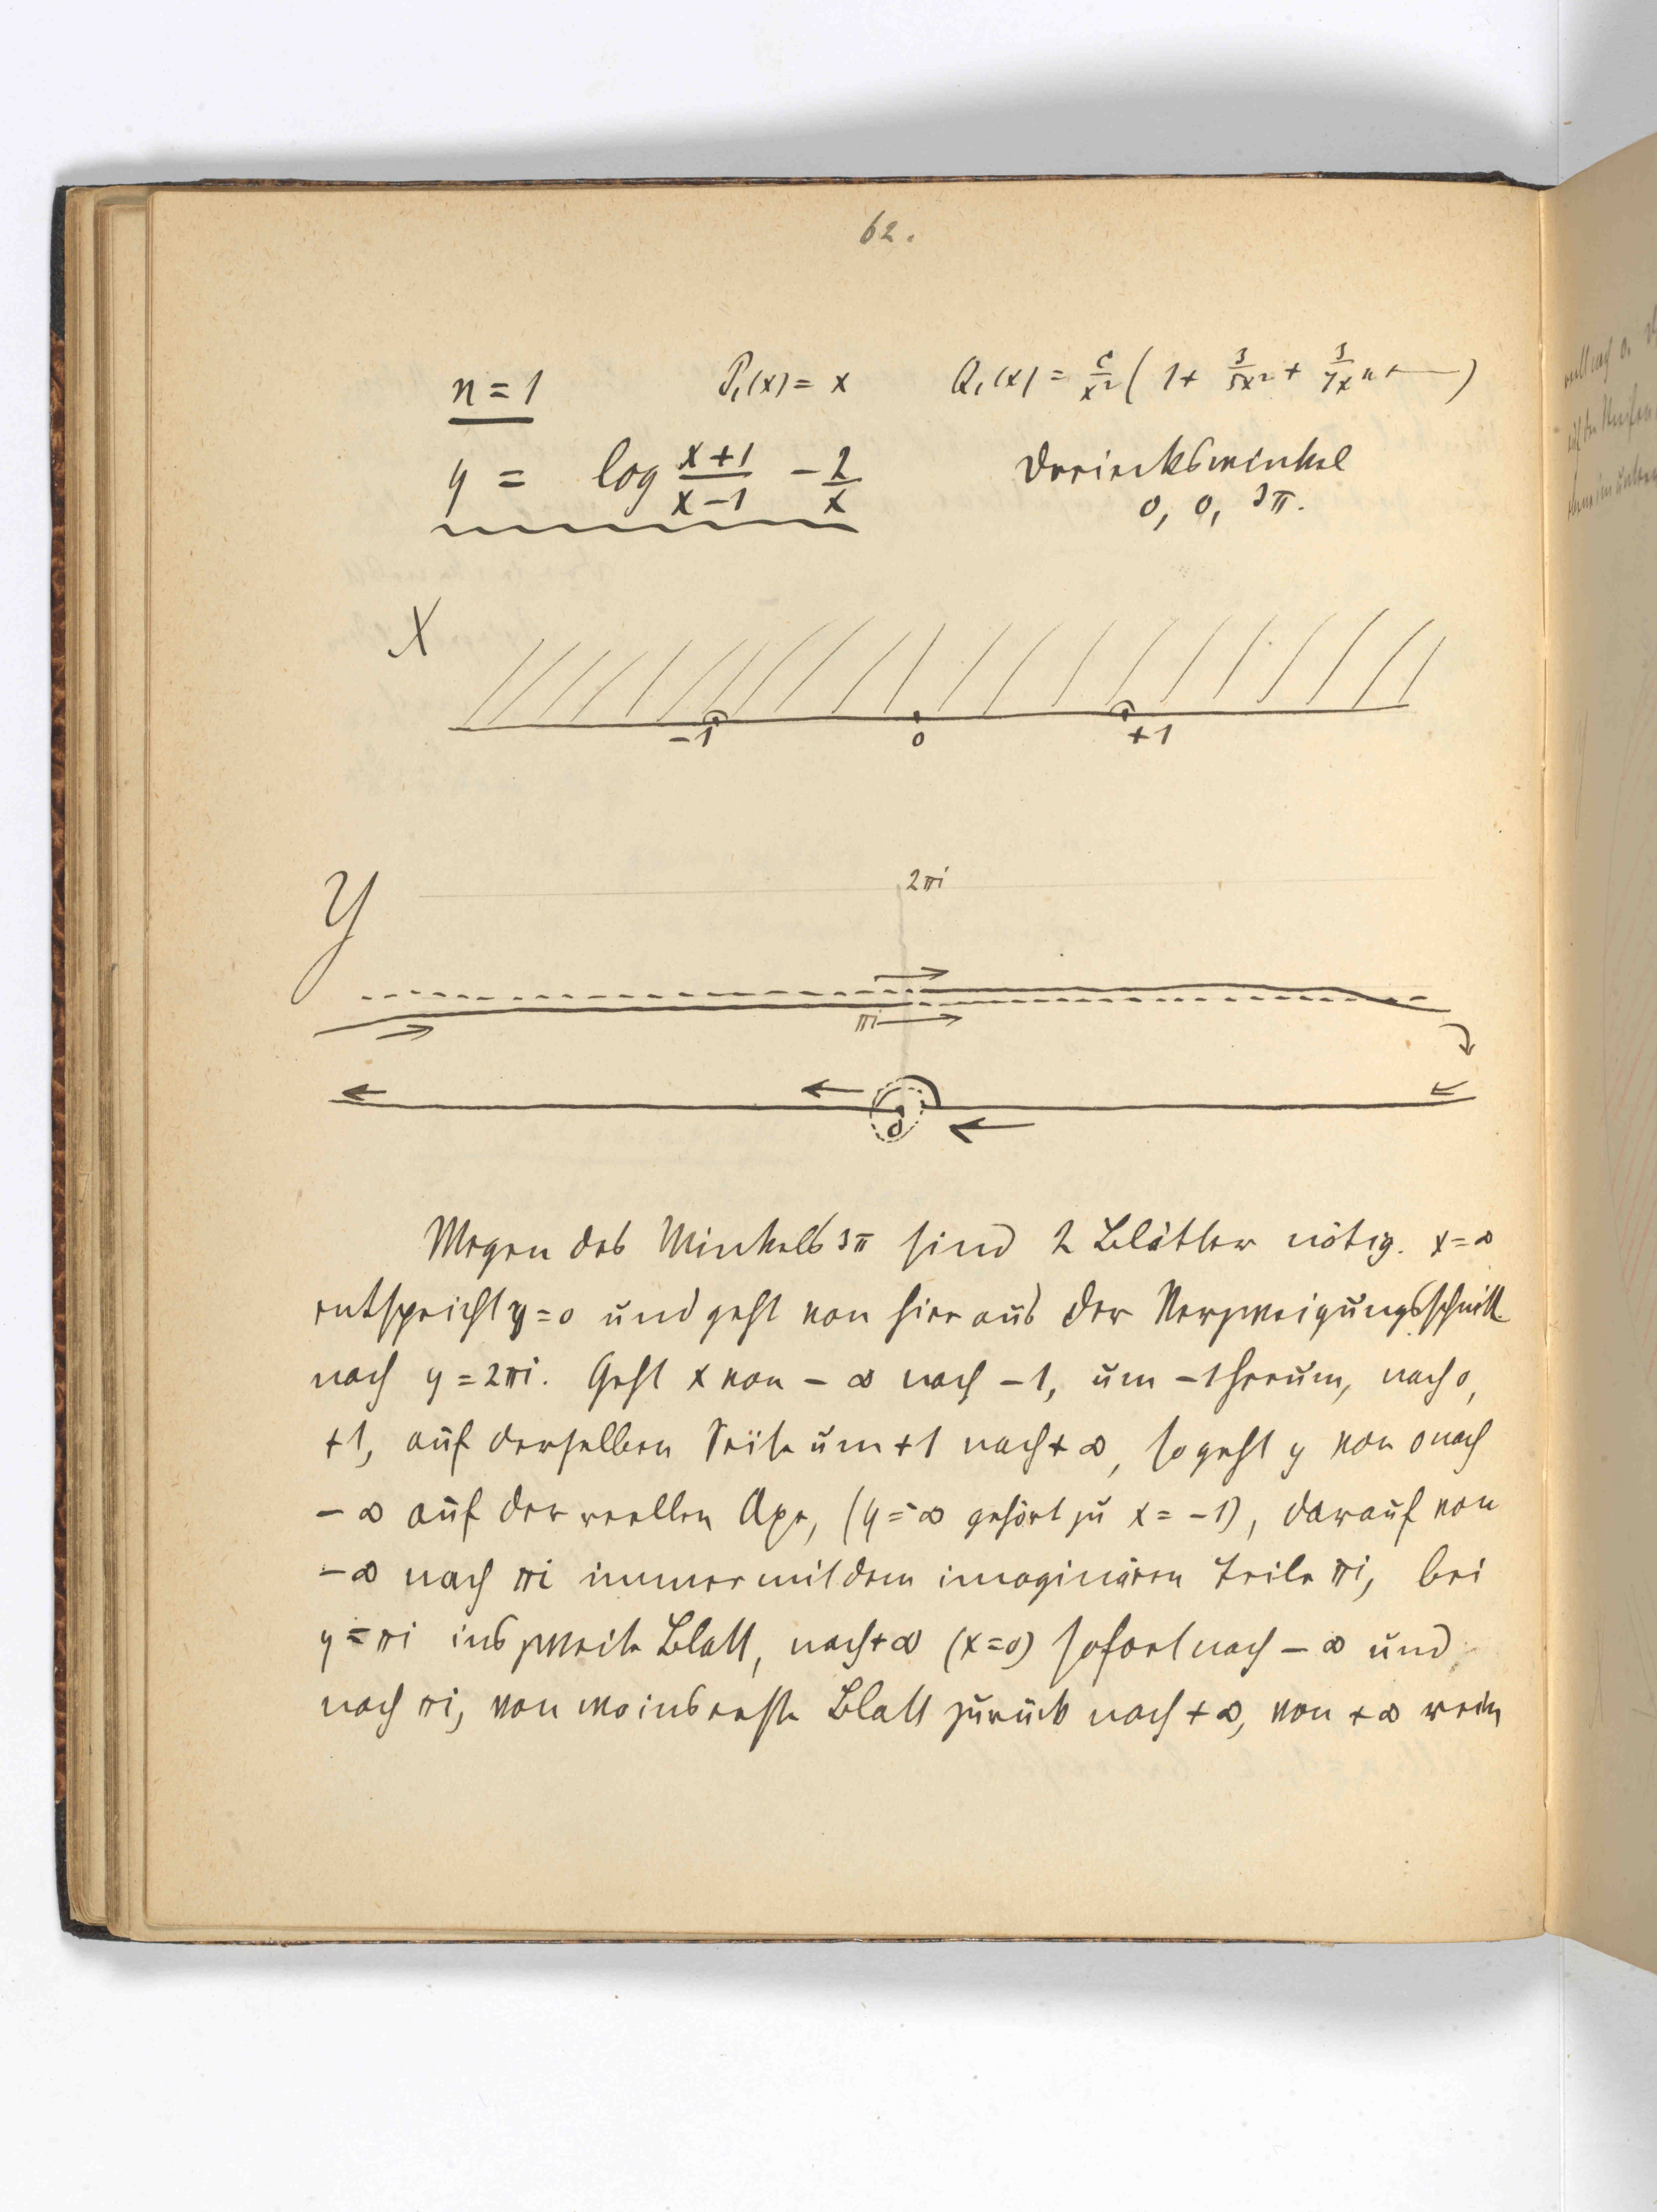 62.
n = 1 P₁(x) = x Q₁(x) = c/x² ( 1 + 3/5x² + 3/7x⁴ + — )
y = log (x+1)/(x−1) − 2/x Dreieckswinkel
0, 0, 3π.
X
−1 0 +1
Y 2πi
πi
0
Wegen des Winkels 3π sind 2 Blätter nötig. x = ∞
entspricht y = 0 und geht von hier aus der Verzweigungsschnitt
nach y = 2πi. Geht x von − ∞ nach −1, um −1 herum, nach 0,
+1, auf derselben Seite um +1 nach + ∞, so geht y von 0 nach
− ∞ auf der reellen Axe, (y = ∞ gehört zu x = −1), darauf von
− ∞ nach πi immer mit dem imaginären Teile πi, bei
y = πi ins zweite Blatt, nach + ∞ (x = 0) sofort nach − ∞ und
nach πi, von wo ins erste Blatt zurück nach + ∞, von + ∞